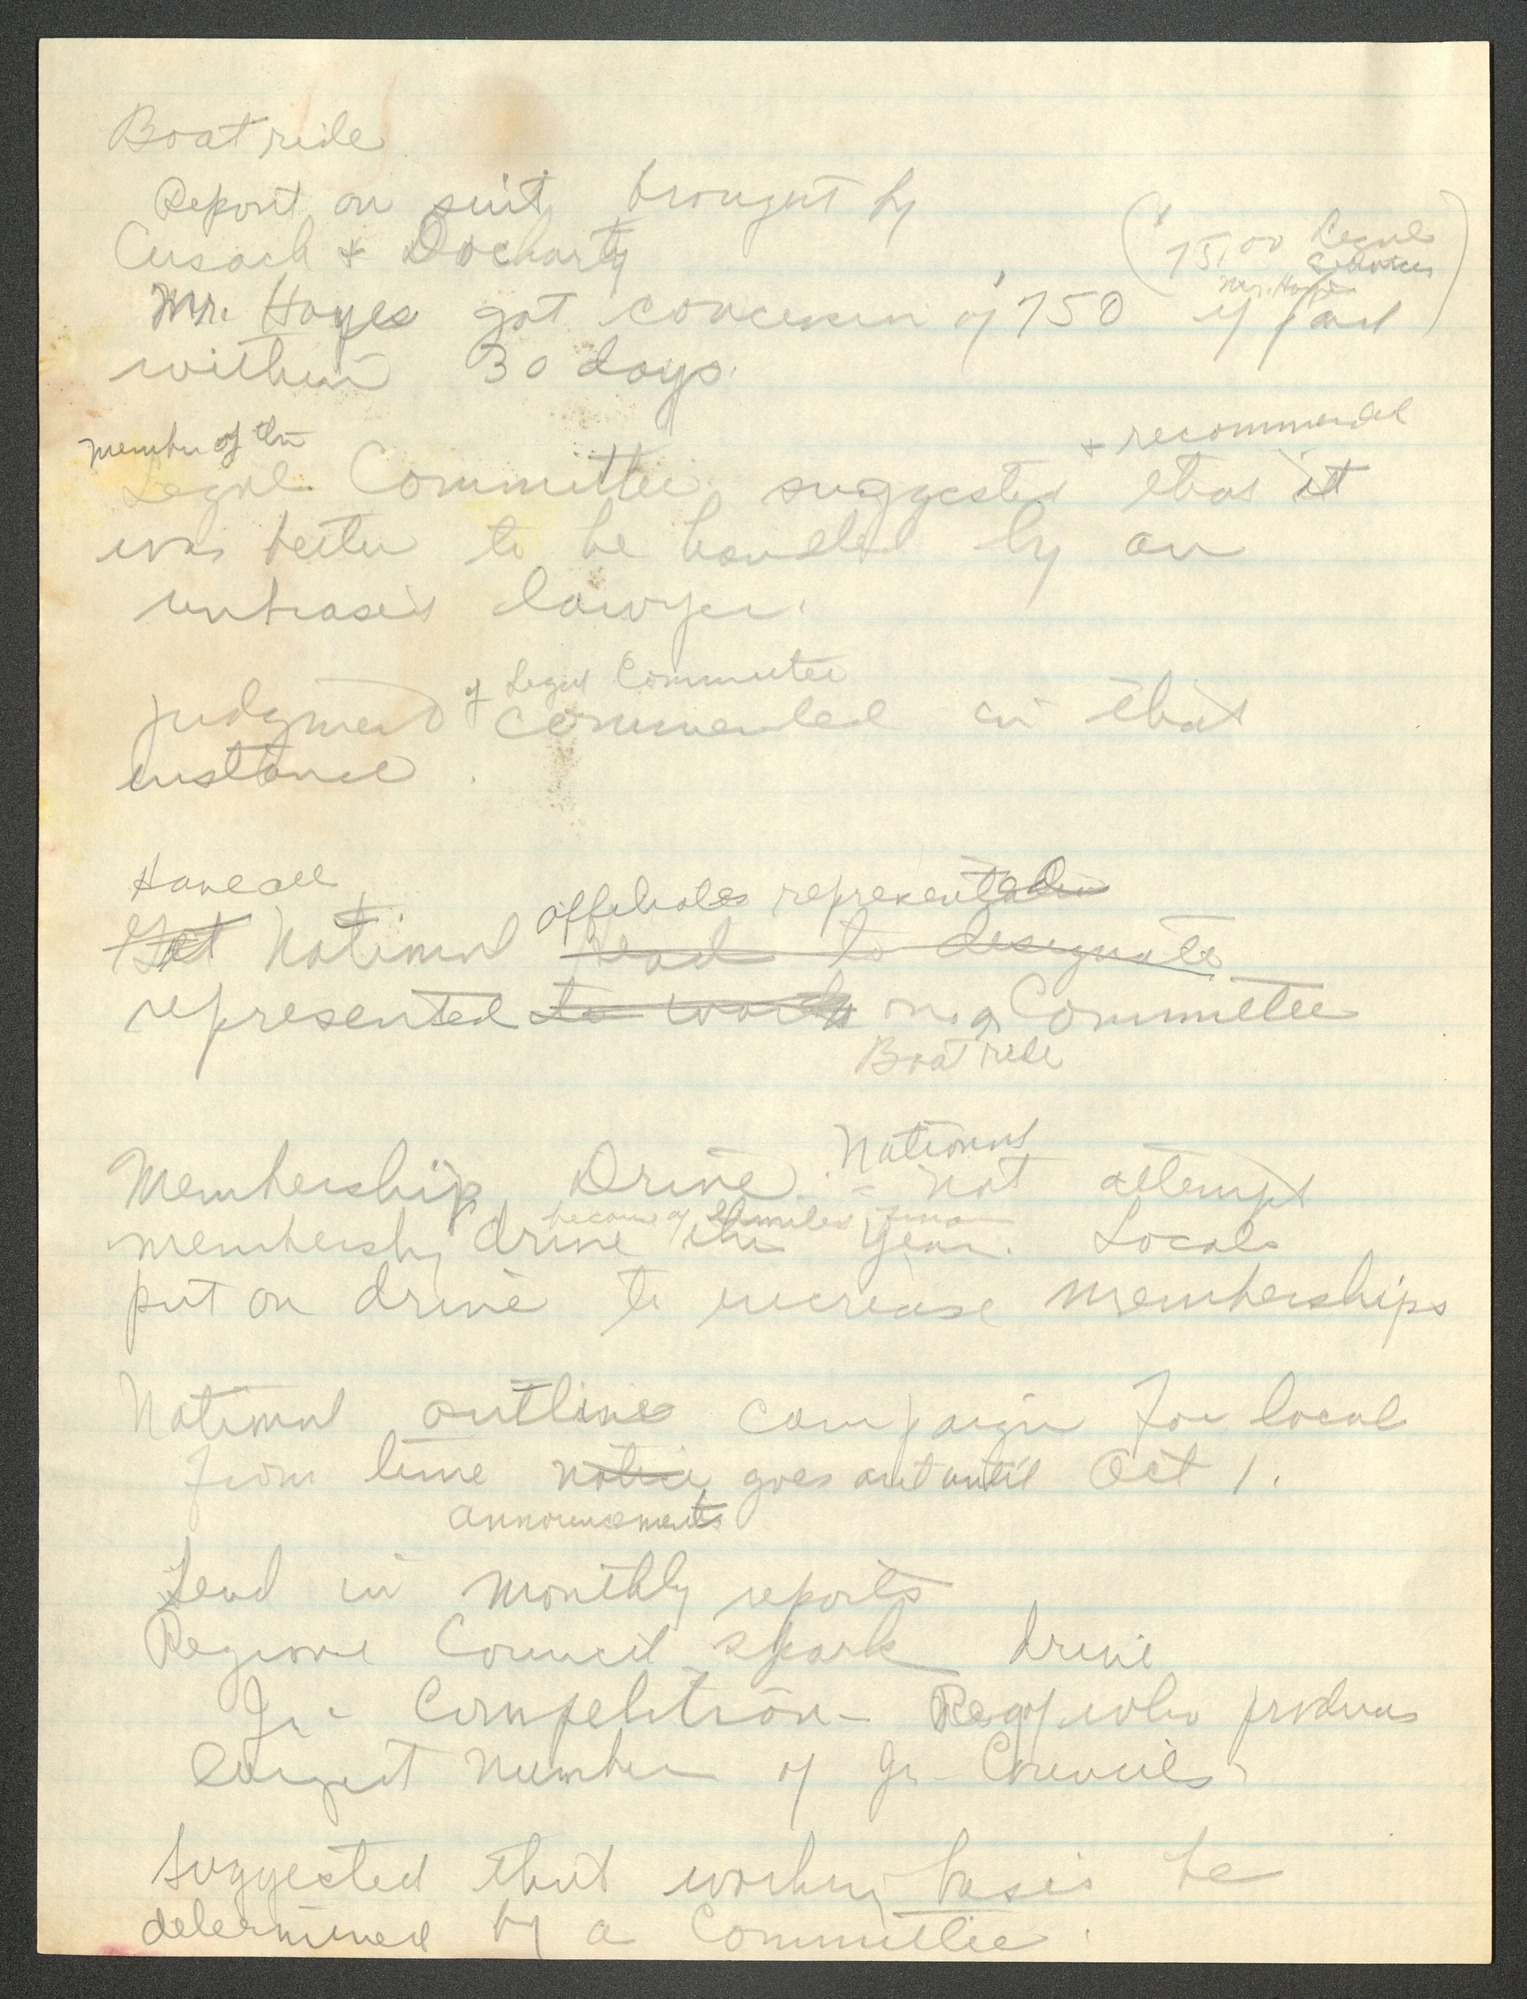 Boatride
Report on suit brought by
Cusack & Docharty
($75.00 Legal Services
Mr. Hayes)
Mr. Hayes got concession of $750 if paid
within 30 days.
member of the
+ recommended
Legal Committee suggested that it
was better to be handled by an
unbiased lawyer.
of Legal Committee
judgment commended in that
instance.
Have all
affiliates representation
Get National head to designate
represented to work on a Committee
Boatride
National
Membership Drive - not attempt
because of limited finan
membership drive this year. Locals
put on drive to increase memberships
National outlines campaign for local
from time notice goes out until Oct 1.
announcements
Send in monthly reports
Regional Council spark drive
Jr - Competition - Reg of who produces
largest number of Jr - Councils
Suggested that working basis be
determined by a Committee.